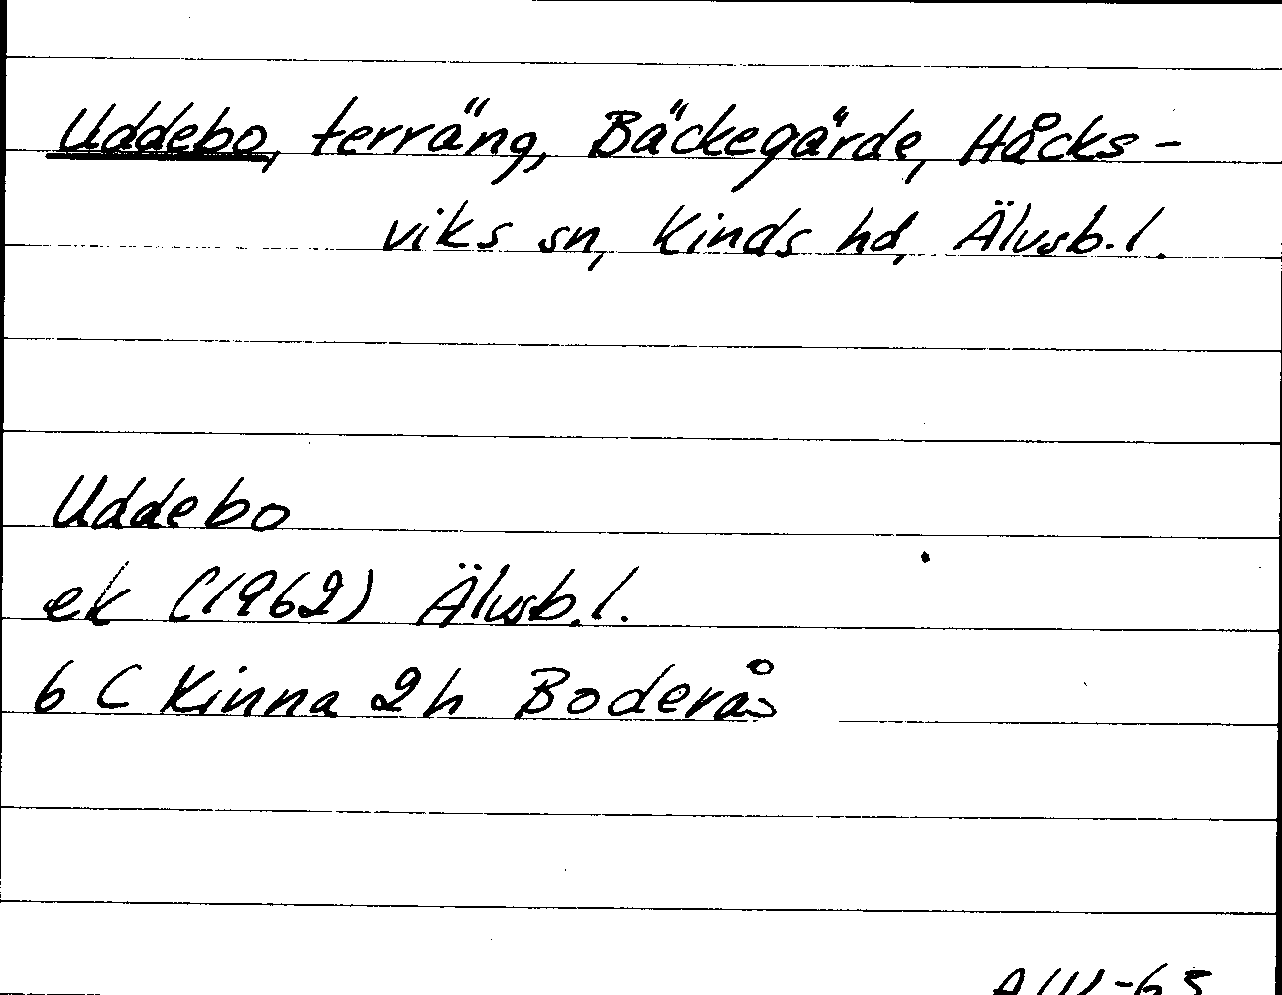 Uddebo, terräng, Bäckegärde, Håcks-
viks sn, Kinds hd, Älvsb.l.
Uddebo
ek (1962) Älvsb.l.
6 C Kinna 2h Boderås